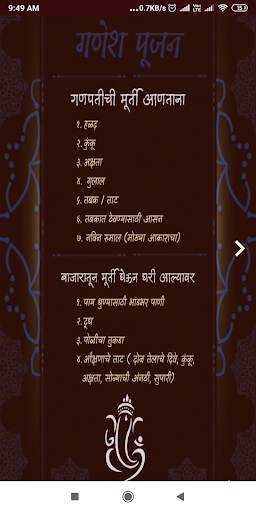 9:49 AM
...0.7KB/s
15
गणेश पूजन
गणपतीची मूर्ती आणताना
१. हळद
२. कुंकू
३. अक्षता
४. गुलाल
५. तबक / ताट
६. तबकात ठेवण्यासाठी आसन
७. नविन रुमाल (मोठ्या आकाराचा)
बाजारातून मूर्ती घेऊन घरी आल्यावर
१. पाय धुण्यासाठी भांडभर पाणी
२. दूध
३. पोळीचा तुकडा
४. औक्षणाचे ताट ( दोन तेलाचे दिवे, कुंकू,
अक्षता, सोन्याची अंगठी, सुपारी)